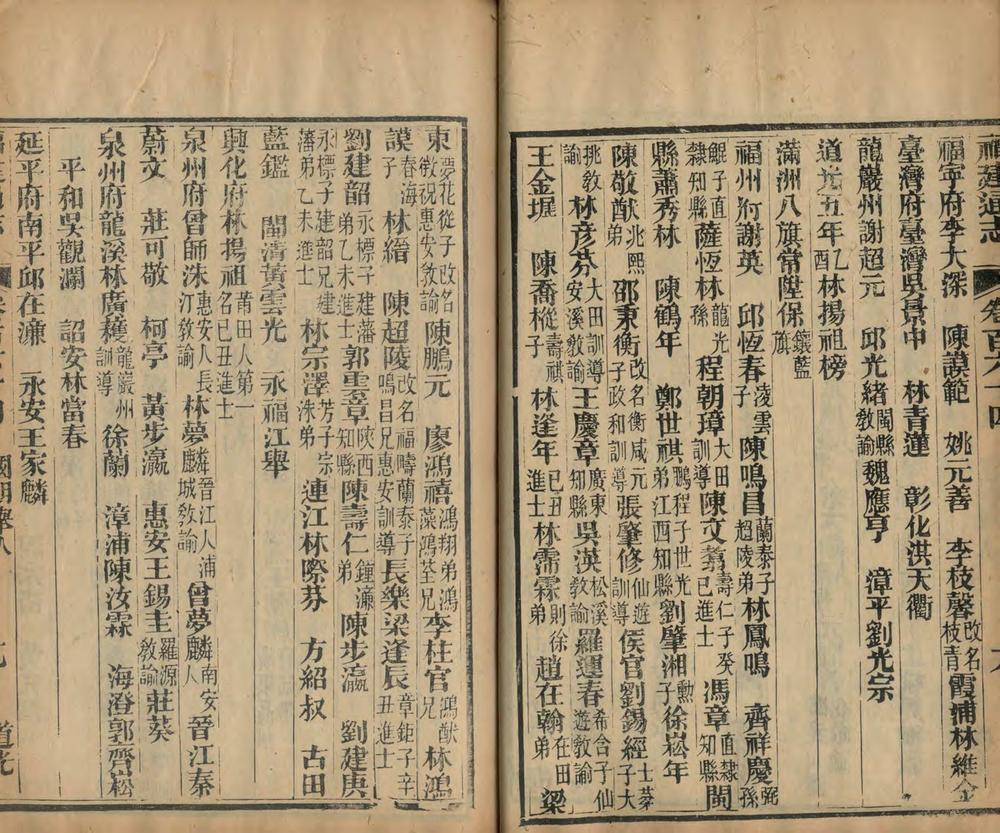 福建通志 卷百六十四
福寧府李大深 陳謨範 姚元善 李枝馨改名枝青霞浦林維金
臺灣府臺灣吳景中 林青蓮 彰化洪天衢
龍巖州謝超元 邱光緒閩縣教諭魏應亨 漳平劉光宗
道光五年乙酉林揚祖榜
滿洲八旗常陞保鑲藍旗
福州府謝英 邱恆春凌雲子陳鳴昌蘭泰子超陵弟林鳳鳴 齊祥慶弼孫
鯤子直隸知縣薩恆林龍光孫程朝璋大田訓導陳文翥壽仁子癸巳進士馮章直隸知縣閩
縣蕭秀林 陳鶴年 鄭世祺鵬程子世光弟江西知縣劉肇湘勲子徐崧年
陳敬猷兆熙弟邵東衡改名衡咸元子政和訓導張肇修仙遊訓導侯官劉錫經士棻子大
挑教諭林彥芬大田訓導安溪教諭王慶章廣東知縣吳渶松溪教諭羅運春希合子仙遊教諭
王金墀 陳喬樅壽祺子林逢年己丑進士林霈霖則徐弟趙在翰在田弟梁
東夢花從子改名徵祝惠安教諭陳鵬元 廖鴻禧鴻翔弟鴻藻鴻荃兄李柱官鴻猷兄林鴻
謨春海子林縉 陳超陵改名福疇蘭泰子鳴昌兄惠安訓導長樂梁逢辰章鉅子辛丑進士
劉建韶永標子建藩弟乙未進士郭雲章陝西知縣陳壽仁鍾濂弟陳步瀛 劉建庚
永標子建韶兄建藩弟乙未進士林宗澤芳子宗洙弟連江林際芬 方紹叔 古田
藍鑑 閩清黃雲光 永福江舉
興化府林揚祖莆田人第一名己丑進士
泉州府曾師洙惠安人長汀教諭林夢麟晉江人浦城教諭曾夢麟南安人晉江秦
蔚文 莊可敬 柯亭 黃步瀛 惠安王錫圭羅源教諭莊葵
泉州府龍溪林廣蘊龍巖州訓導徐蘭 漳浦陳汝霖 海澄郭齊崧
平和吳觀瀾 詔安林當春
延平府南平邱在濂 永安王家麟
道光